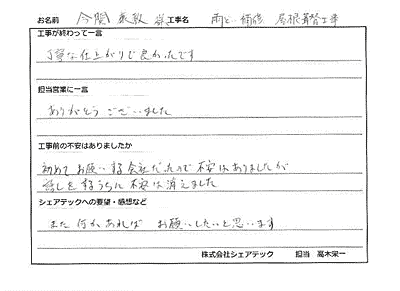 お名前 今関 様 工事名 雨どい補修 屋根葺替工事
工事が終わって一言
丁寧な仕上がりで良かったです
担当営業に一言
ありがとうございました
工事前の不安はありましたか
初めてお願いする会社だったので不安はありましたが
話しをするうちに不安は消えました
シェアテックへの要望・感想など
また何かあれば お願いしたいと思います
株式会社シェアテック 担当 高木栄一